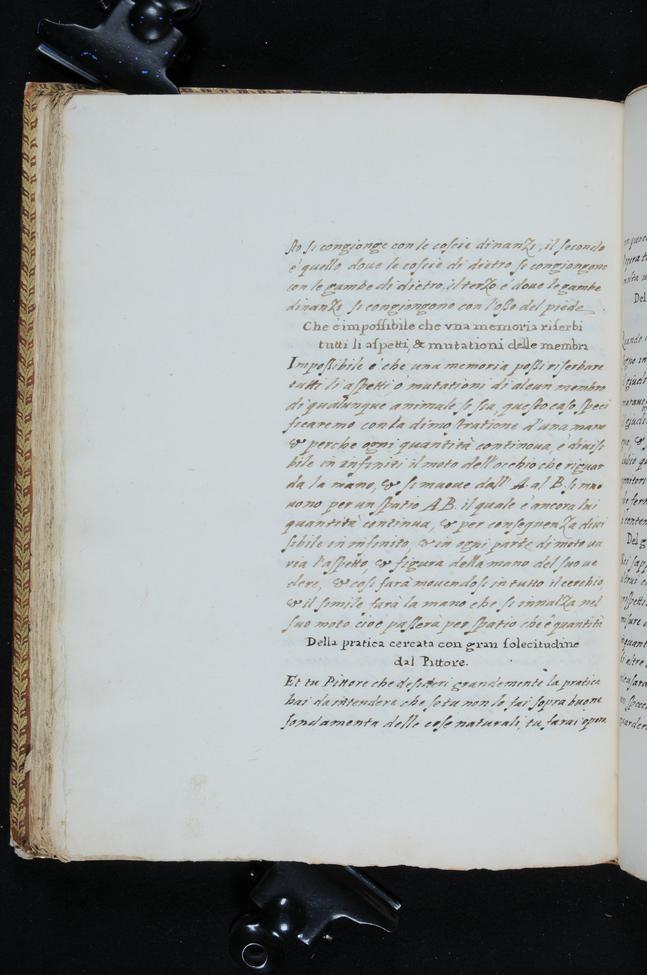 sto si congionge con le coscie dinanzi, il secondo
è quello doue le coscie di dietro si congiongono
con le gambe di dietro, il terzo è doue le gambe
dinanzi si congiongono con l'osso del piede.
Che è impossibile che vna memoria riserbi
tutti li aspetti, & mutationi delle membra
Impossibile è che una memoria possi riserbare
tutti li aspetti ò mutationi di alcun membro
di qualunque animale si sia, questo caso speci
ficaremo con la dimostratione d'una mano
& perche ogni quantità continova, è divisi
bile in infiniti il moto dell'occhio che riguar
da la mano, & si muove dall' A. al. B. si mo
uono per un spatio A.B. il quale è ancora lui
quantità continua, & per consequenza divi
sibile in infinito, & in ogni parte di moto va
ria l'aspetto, & figura della mano del suo ve
dere, & cosi farà movendosi in tutto il cerchio,
& il simile farà la mano che si innalza nel
suo moto cioè passerà per spatio che è quantità
Della pratica cercata con gran solecitudine
dal Pittore.
Et tu Pittore che desideri grandemente la pratica
hai da intendere che se tu non le fai sopra buono
fondamento delle cose naturali, tu farai opere